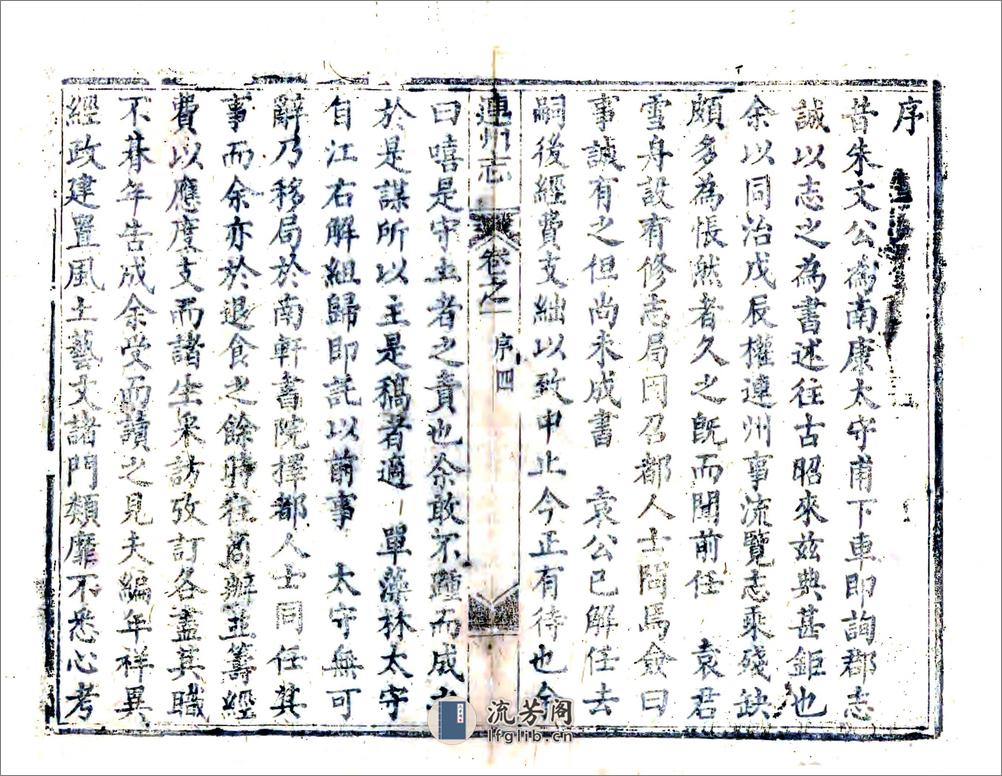 序
昔朱文公為南康太守甫下車即詢郡志
誠以志之為書述往古昭來茲典甚鉅也
余以同治戊辰權連州事流覽志乘殘缺
頗多為悵然者久之既而聞前任 袁君
雪身設有修志局因召都人士問焉僉曰
事誠有之但尚未成書 袁公已解任去
嗣後經費支絀以致中止今正有待也余
連州志 卷之一 序 四
曰嘻是守土者之責也余敢不踵而成之
於是謀所以主是稿者適 單藻林太守
自江右解組歸即託以前事 太守無可
辭乃移局於南軒書院擇都人士同任其
事而余亦於退食之餘時在商辦並籌經
費以應度支而諸生采訪攷訂各盡其職
不朞年告成余受而讀之見夫編年祥異
經政建置風土藝文諸門類靡不悉心考
流芳阁
lfglib.cn